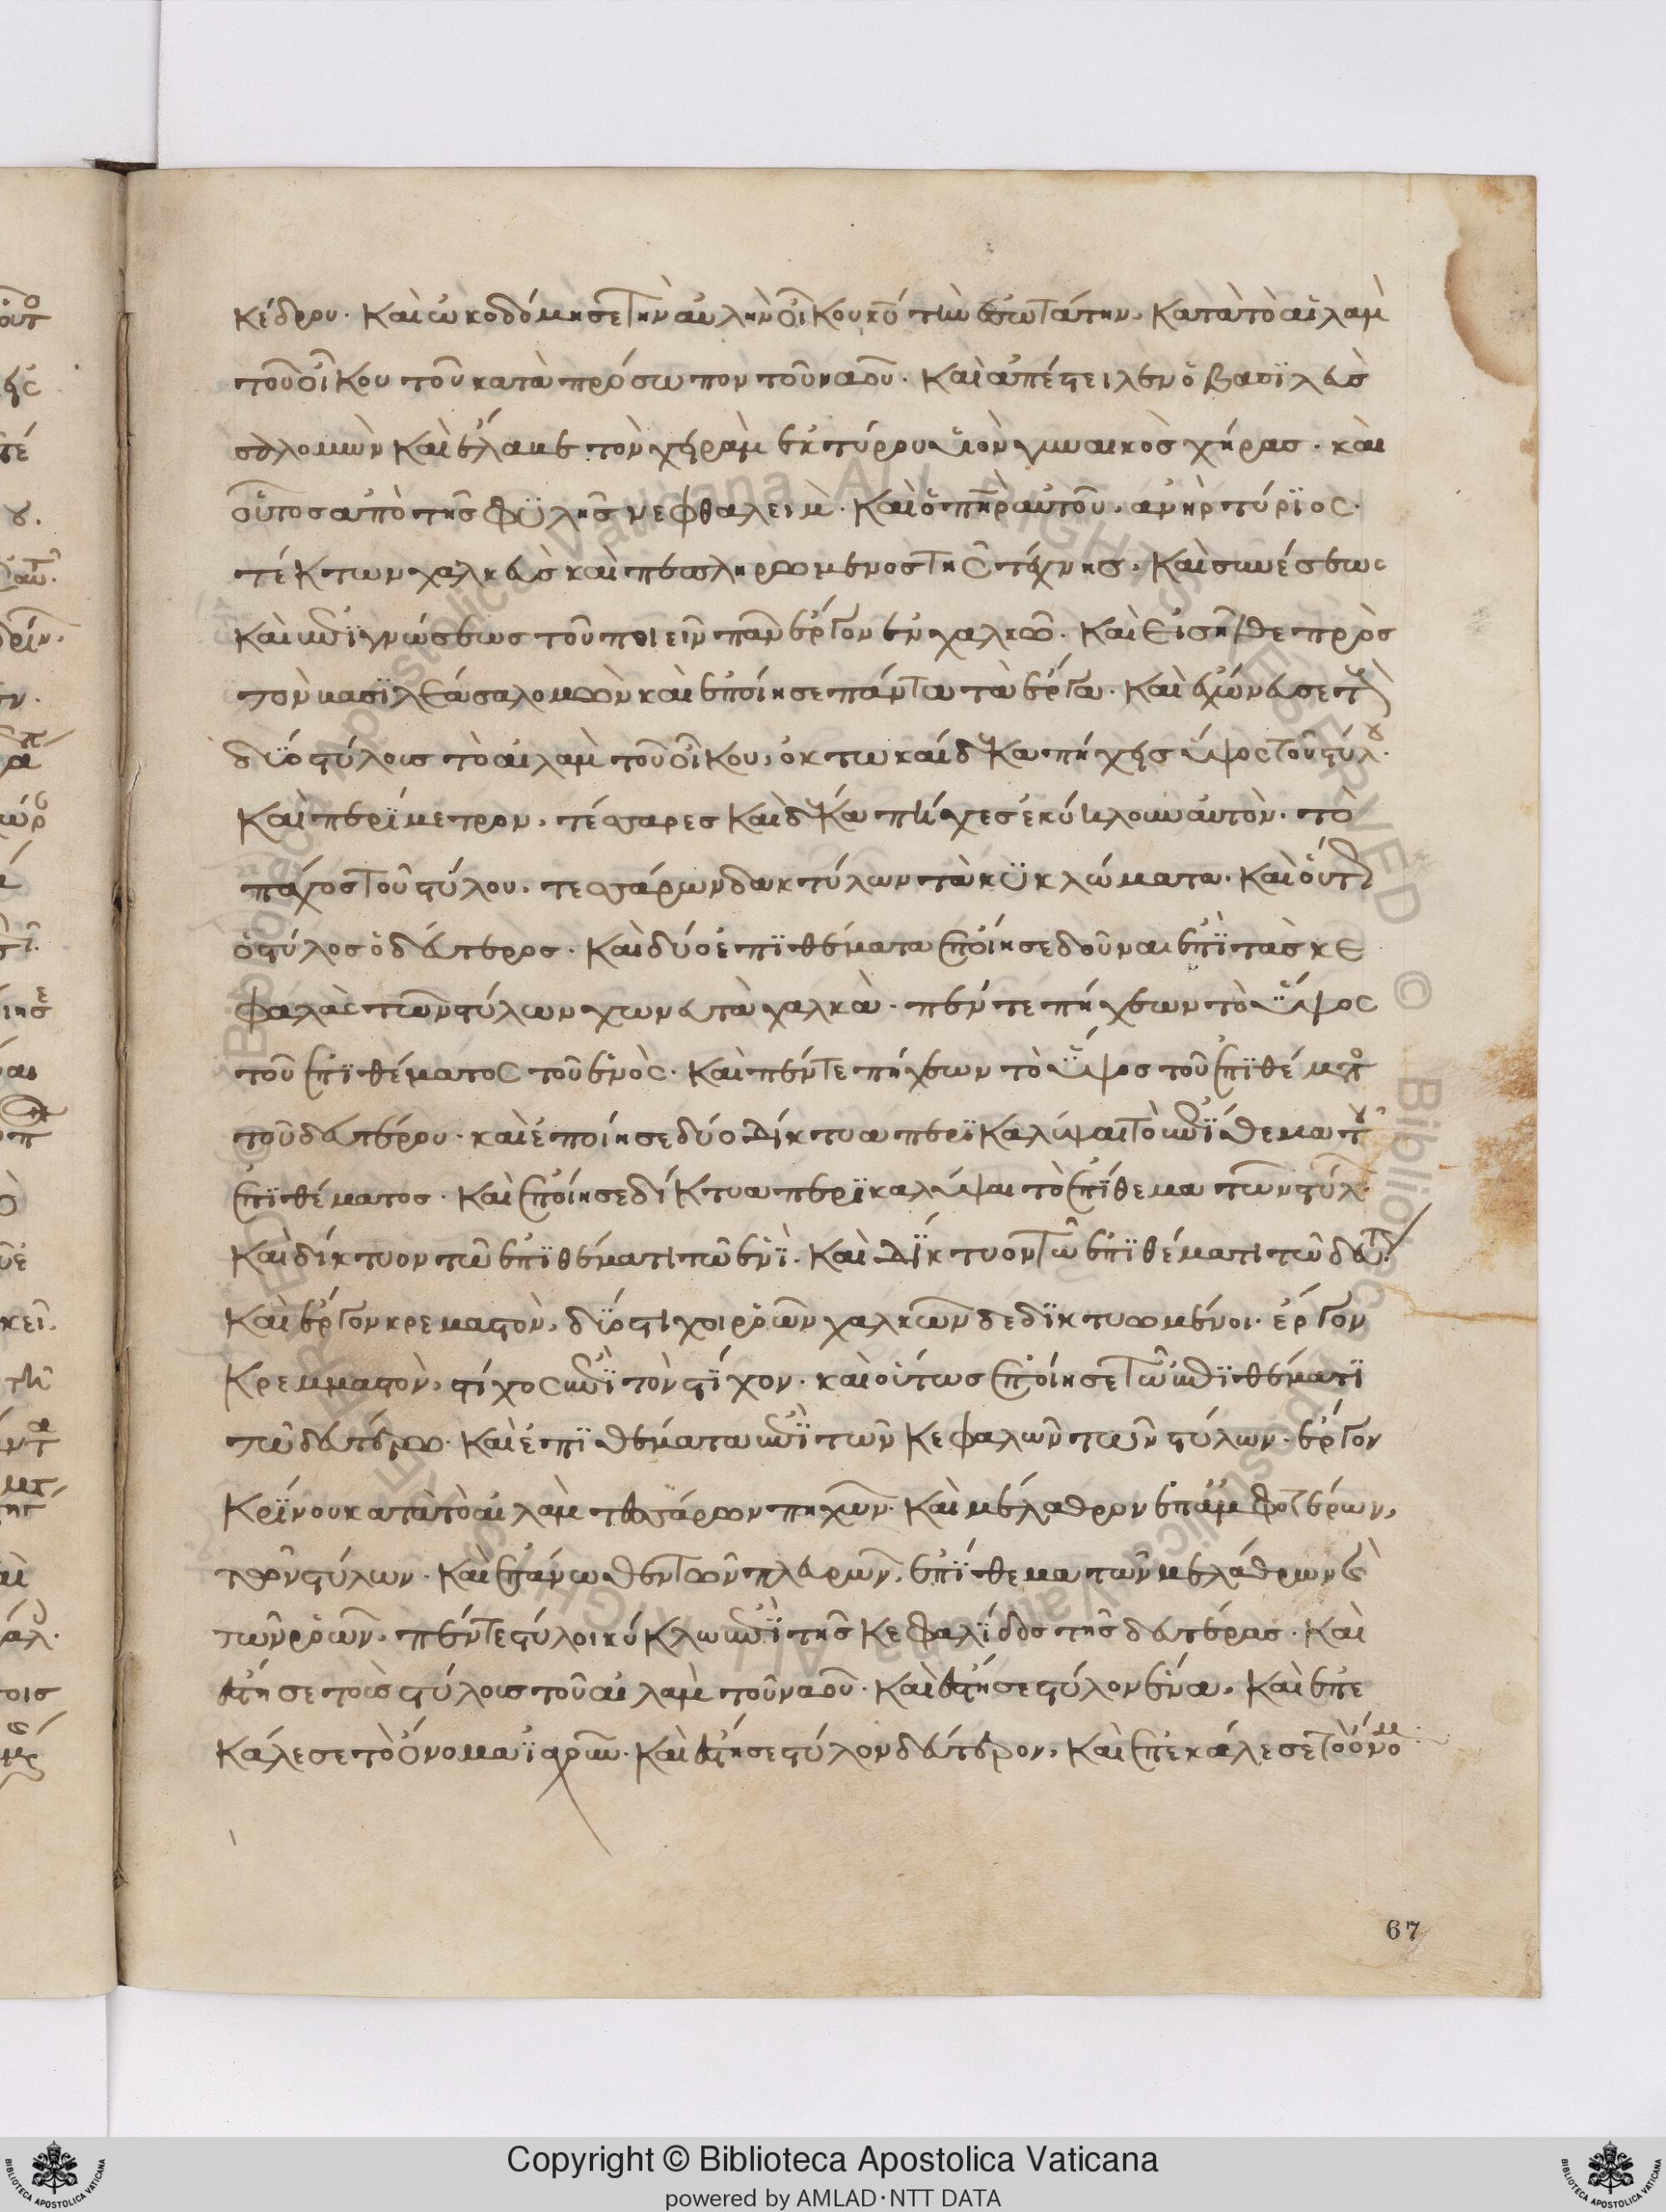 κέδρου. Καὶ ὠκοδόμησε τὴν αὐλὴν οἴκου κυ τὴν ἐσωτάτην, κατὰ τὸ αἰλαμ
τοῦ οἴκου τοῦ κατὰ πρόσωπον τοῦ ναοῦ. Καὶ ἀπέστειλεν ὁ βασϊλεὺσ
σαλομὼν καὶ ἔλαβε τὸν χηρὰμ ἐκ τύρου υἱὸν γυναικὸσ χήρασ. καὶ
οὗτοσ ἀπὸ τῆσ φϋλῆσ νεφθαλειμ. Καὶ ὁ πηρ αὐτοῦ, ἀνὴρ τύρϊος.
τέκτων χαλκεὺσ καὶ πεπληρωμένοσ τῆς τέχνησ, καὶ συνέσεως
καὶ ἐπϊγνώσεως τοῦ ποιεῖν πᾶν ἔργον ἐν χαλκῶ. Καὶ εἰσῆλθε πρὸσ
τὸν βασϊλέα σαλομῶν καὶ ἐποίησε πάντα τὰ ἔργα. Καὶ ἐχώνευσε τοὺς
δύο στύλουσ τὸ αἰλαμ τοῦ οἴκου, ὀκτωκαίδεκα πήχησ ὕψος τοῦ στύλου.
Καὶ περίμετρον, τέσσαρεσ καὶ δέκα πήχεσ ἐκύκλουν αὐτὸν. τὸ
πάχοσ τοῦ στύλου, τεσσάρων δακτύλων τὰ κϋκλώματα. Καὶ οὕτως
ὁ στύλοσ ὁ δεύτεροσ. Καὶ δύο ἐπϊθέματα ἐποίησε δοῦναι ἐπῒ τὰσ κε
φαλὰς τῶν στύλων χωνευτὰ χαλκὰ. πέντε πήχεων τὸ ὕψος
τοῦ ἐπϊθέματος τοῦ ἑνὸς. Καὶ πέντε πήχεων τὸ ὕψοσ τοῦ ἐπϊθέματος
τοῦ δευτέρου. καὶ ἐποίησε δύο δίκτυα περϊκαλύψαι τὸ ἐπίθεμα τοῦ
ἐπϊθέματοσ. Καὶ ἐποίησε δίκτυα περϊκαλύψαι τὸ ἐπίθεμα τῶν στύλων.
Καὶ δίκτυον τῶ ἐπϊθέματι τῶ ἑνῒ. Καὶ δίκτυον τῶ ἐπϊθέματι τῶ δευτέρω.
Καὶ ἔργον κρεμαστὸν, δύο στίχοι ῥοῶν χαλκῶν δεδϊκτυωμένοι. ἔργον
κρεμμαστὸν, στίχος ἐπῒ τὸν στίχον. καὶ οὕτωσ ἐποίησε τῶ ἐπϊθέματϊ
τῶ δευτέρω. Καὶ ἐπϊθέματα ἐπῒ τῶν κεφαλῶν τῶν στύλων. ἔργον
κρϊνου κατὰ τὸ αἰλαμ τεσσάρων πηχῶν. Καὶ μέλαθρον ἐπ' ἀμφοτέρων,
τῶν στύλων. Καὶ ἐπάνωθεν τῶν πλευρῶν, ἐπίθεμα τῶν μελάθρων καὶ
τῶν ῥοῶν, πέντε στύλοι κύκλω ἐπῒ τῆσ κεφαλϊδοσ τῆσ δευτέρασ. Καὶ
ἔστησε τοὺσ στύλουσ τοῦ αἰλαμ τοῦ ναοῦ. Καὶ ἔστησε στύλον ἕνα, καὶ ἐπε
κάλεσε τὸ ὄνομα ἰαχοὺμ. Καὶ ἔστησε στύλον δεύτερον, καὶ ἐπεκάλεσε τὸ ὄνομα
67
Copyright © Biblioteca Apostolica Vaticana
powered by AMLAD·NTT DATA